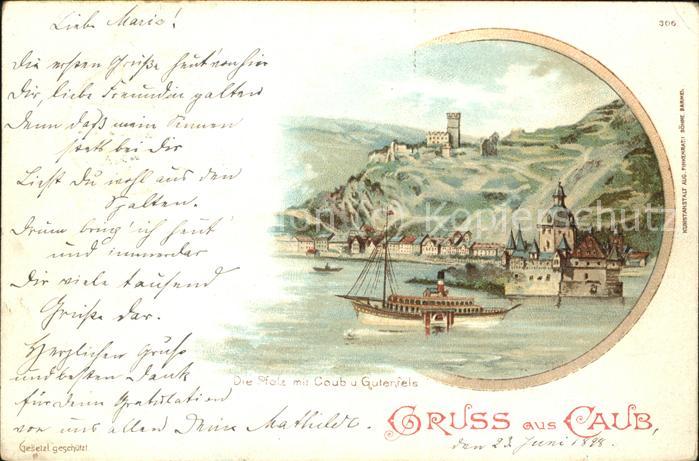 Liebe Marie!
306
Die ersten Grüße heut' von hier
Dir, liebe Freundin galten
Denn daß mein Sinnen
stets bei Dir
Liest Du wohl aus den
Spalten.
Drum bring' ich heut'
und immerdar
Dir viele tausend
Grüße dar.
Herzlichen Gruß
und besten Dank
für Deine Gratulation
von uns allen Deine Mathilde.
Gesetzl. geschützt
Die Pfalz mit Caub u. Gutenfels
GRUSS aus CAUB,
den 23. Juni 1898.
KUNSTANSTALT AUG. FINKENRATH SÖHNE BARMEN.
Kopierschutz